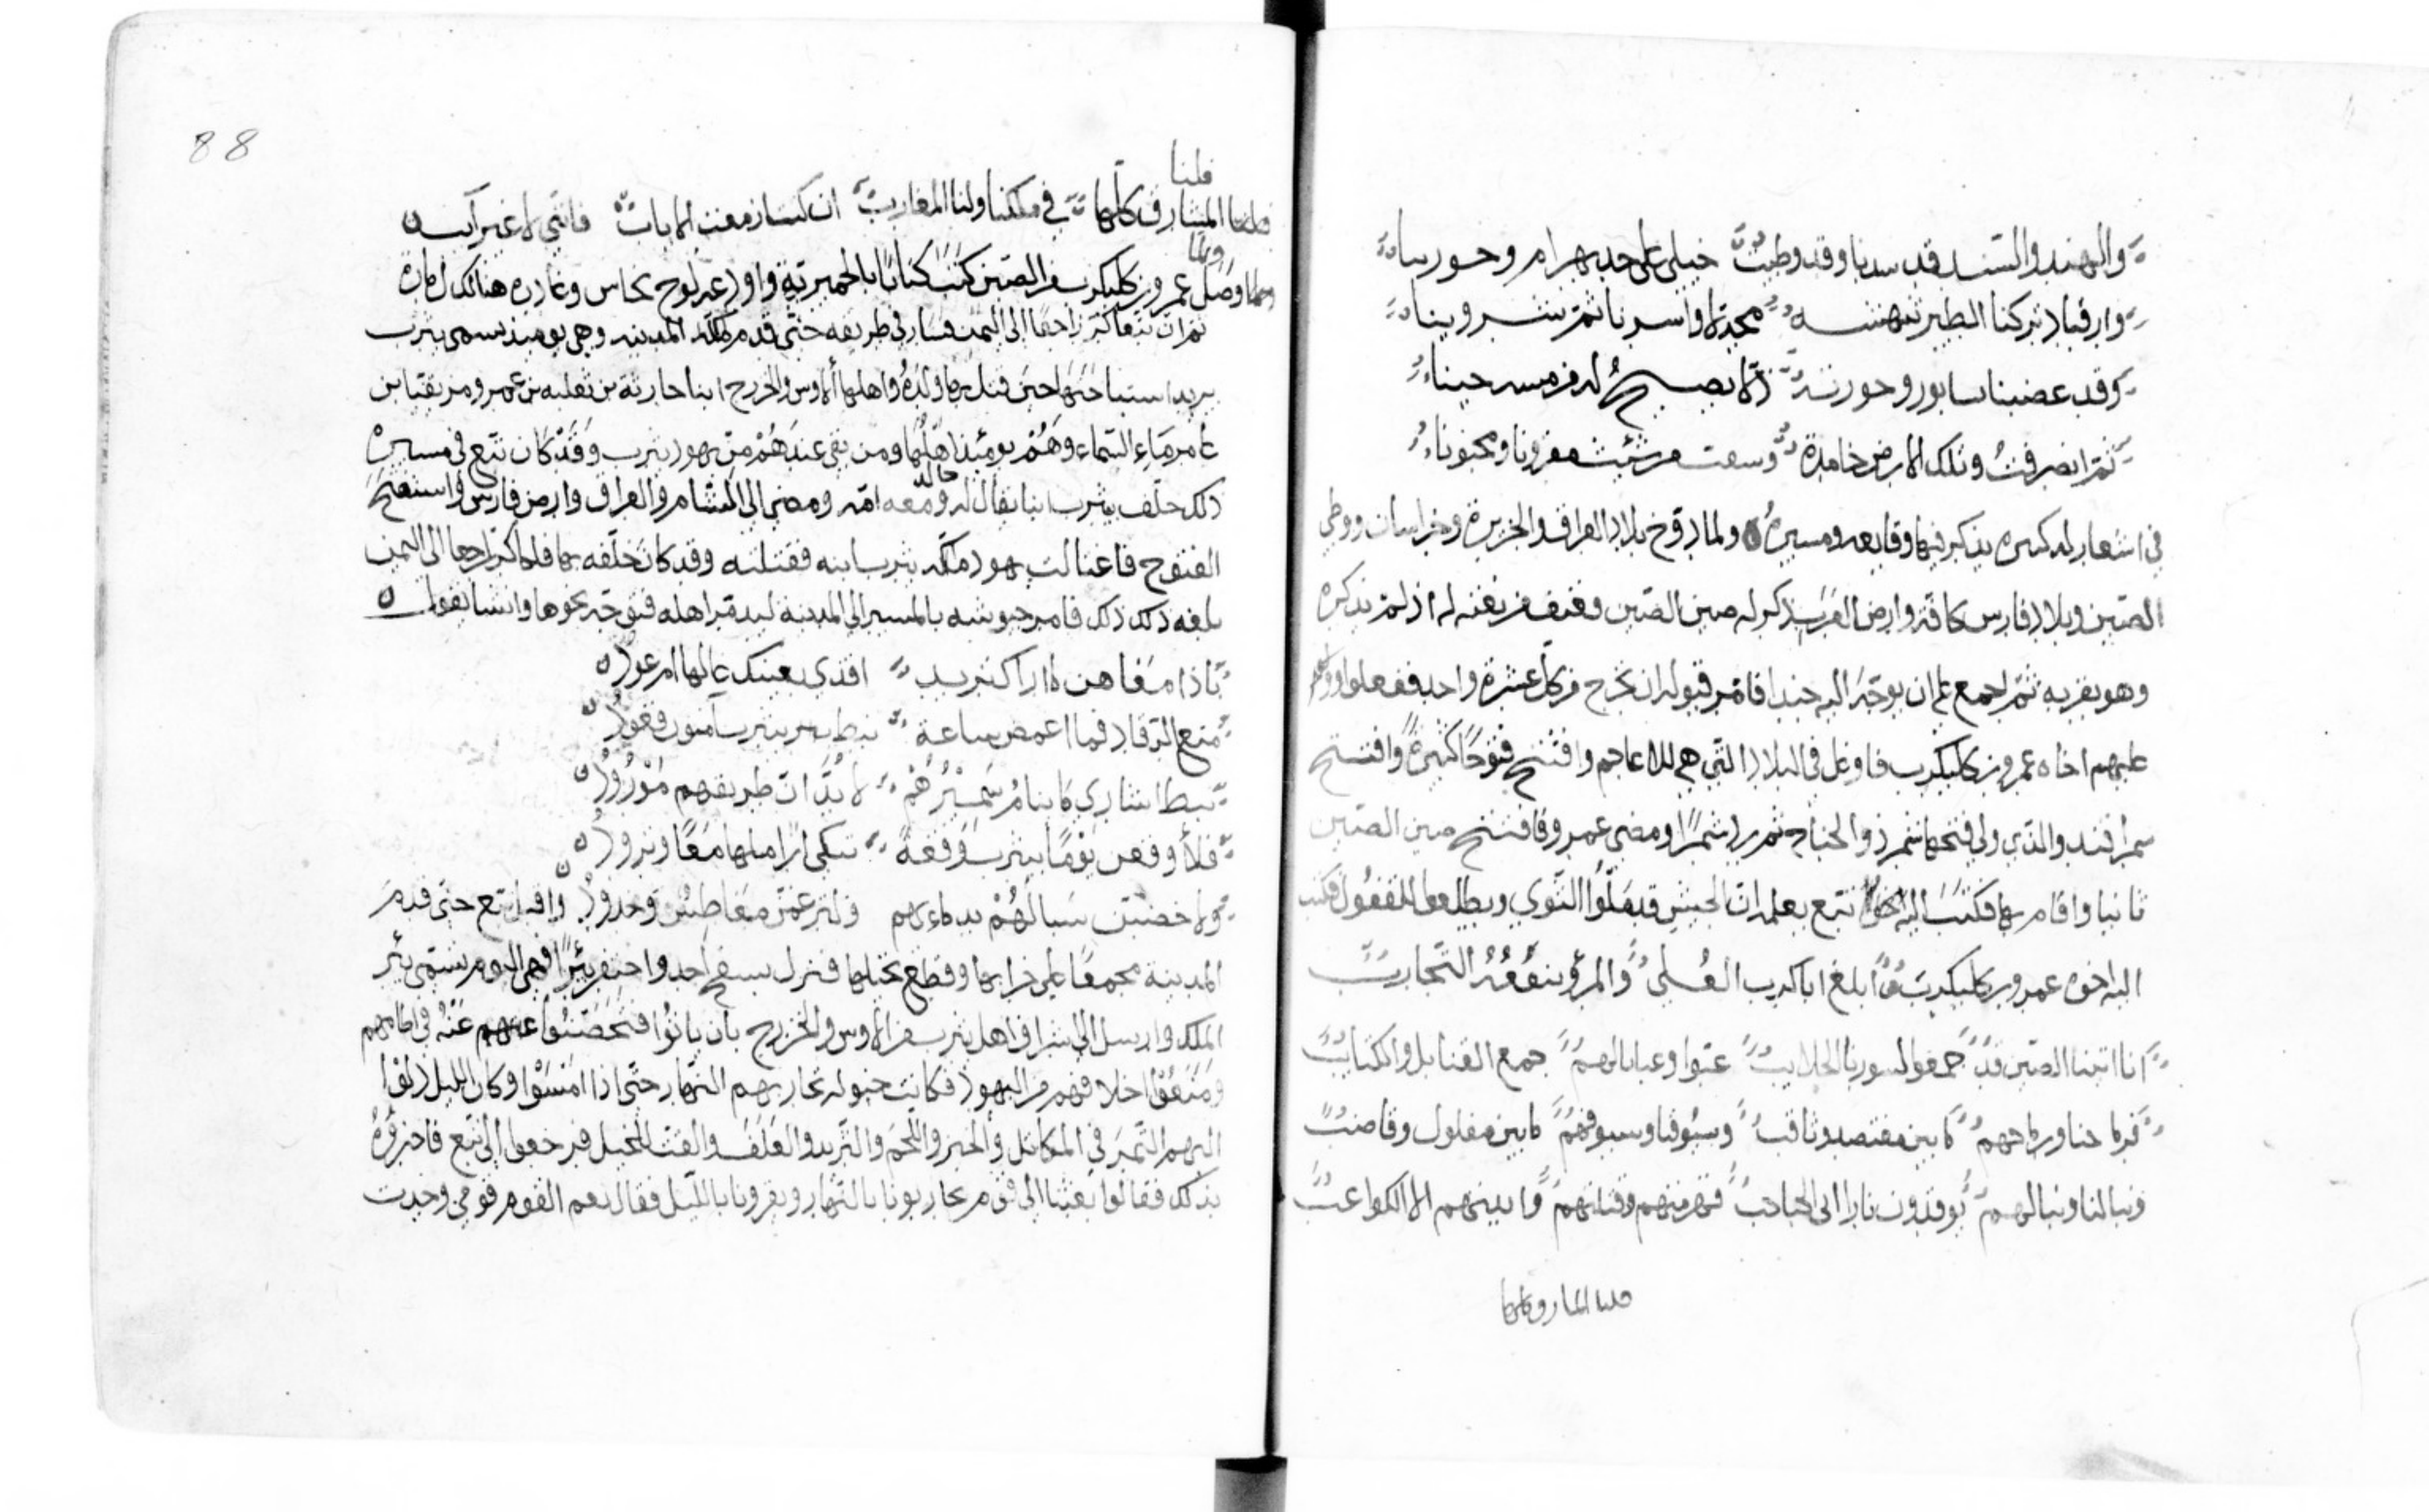 والهند والسند قد سدنا وقد وطيت خيلي على جد بهرام وحور
وارقباد تركنا الطير تنهشه مجدلا واسرنا ثم شروينا
وقد عضبنا سابور وحور الا يصيح له من
ثم انصرفت وتلك الارض خامدة وسعت من شئت مقرونا ومجنونا
في اشعار له كثيره يذكر فيها وقايعه ومسيره ولما دوّخ بلاد العراق والجزيرة وخراسان ووطي
الصين وبلاد فارس كافة وارض ذكر له صين الصين له اذ لم يذكره
وهو بقربه ثم اجمع على ان يوجّه اليه جندا فامر قبوله ان يخرج من كل عشرة واحد ففعلوا
عليهم اخاه عمرو بن كليكرب فاوغل في البلاد التي هي للاعاجم وافتتح فتوحًا كثيرةً وافتتح
سمرقند والذي ولي فتحها شمر ذو الجناح ثم رد شمرًا ومضى عمرو فافتتح صين الصين
ثانيا واقام بها فكتب اليه تبع يعلمه ان الجيش قد ملّوا الثوي
اليه اخوه عمرو بن كليكرب ابلغ ابا كرب العلى والمرؤ ينفعه التجارب
انا اتينا الصين قد جمعوا لسورنا الحلايب عبّوا وعبانا لهم جمع القنابل والكتايب
فرماحنا ورماحهم مابين مقتصد وثاقب وسيوفنا وسيوفهم مابين مفلول وقاضب
ونبالنا ونبالهم يوقدون نارا الى الحباحب فهزمتهم وقتلتهم وابدينهم الا الكواعب
فلنا المشارق كلها
88
فلنا
فلنا المشارق كلها في ملكنا ولنا المغارب فانني لا غير آيب
ولما
ولما وصل عمرو بن كليكرب من الصين كتب كتابًا بالحميرية واودعه لوح نحاس وغادره هنالك
ثم ان تبعا كر راجعًا الى اليمن فسار في طريقه حتى قدم المدينه وهي يوميذ تسمى يثرب
يريد استباحتها حين قتل بها ولده واهلها الاوس والخزرج ابنا حارثة بن ثعلبه بن عمرو مزيقيا بن
عامر ماء السماء وهم يومئذ اهلها ومن بقي عندهم من يهود يثرب وقد كان تبع في مسيره
ذلك خلف بيثرب ابنا يقال له خالد ومعه امّه ومضى الى الشام والعراق وارض فارس واستفتح
الفتوح فاغتالت يهود يثرب ابنه فقتلته وقد كان خلّفه بها فلما كر راجعا الى اليمن
بلغه ذلك فامر جيوشه بالمسير الى المدينة ليدمّر اهله فتوجّه نحوها وانشا يقول
ياذا معاهن ما اراك تريد اقذى بعينك عالها ام عود
منع الرقاد فما اغمض ساعة نبط بيثرب آمنون قعود
نبط اسارى ما ينام سميرهم لابد ان طريقهم مورود
فلأوقعن يومًا بيثرب وقعةً تبكي اراملها معًا وترود
ولاخضبن سبالهم بدماءهم وخدود واقبل تبع حتى قدم
المدينة مجمعًا على خرابها وقطع نخلها فنزل بسفح احد واحتفر بئرًا فهي اليوم تسمى بئر
الملك وارسل الى اشراف اهل يثرب من الاوس والخزرج بان ياتوا فتحصنوا عنه في اطامهم
ومنعوا احلافهم من اليهود فكانت خيوله تحاربهم النهار حتى اذا امسوا وكان الليل دلوا
اليهم التمر في المكاتل والخبز واللحم والثريد والعلف والقت للخيل فرجعوا الى تبع فاخبروه
بذلك فقالوا بعثتنا الى قوم يحاربونا بالنهار ويقرونا بالليل فقال نعم القوم قومي وجدت